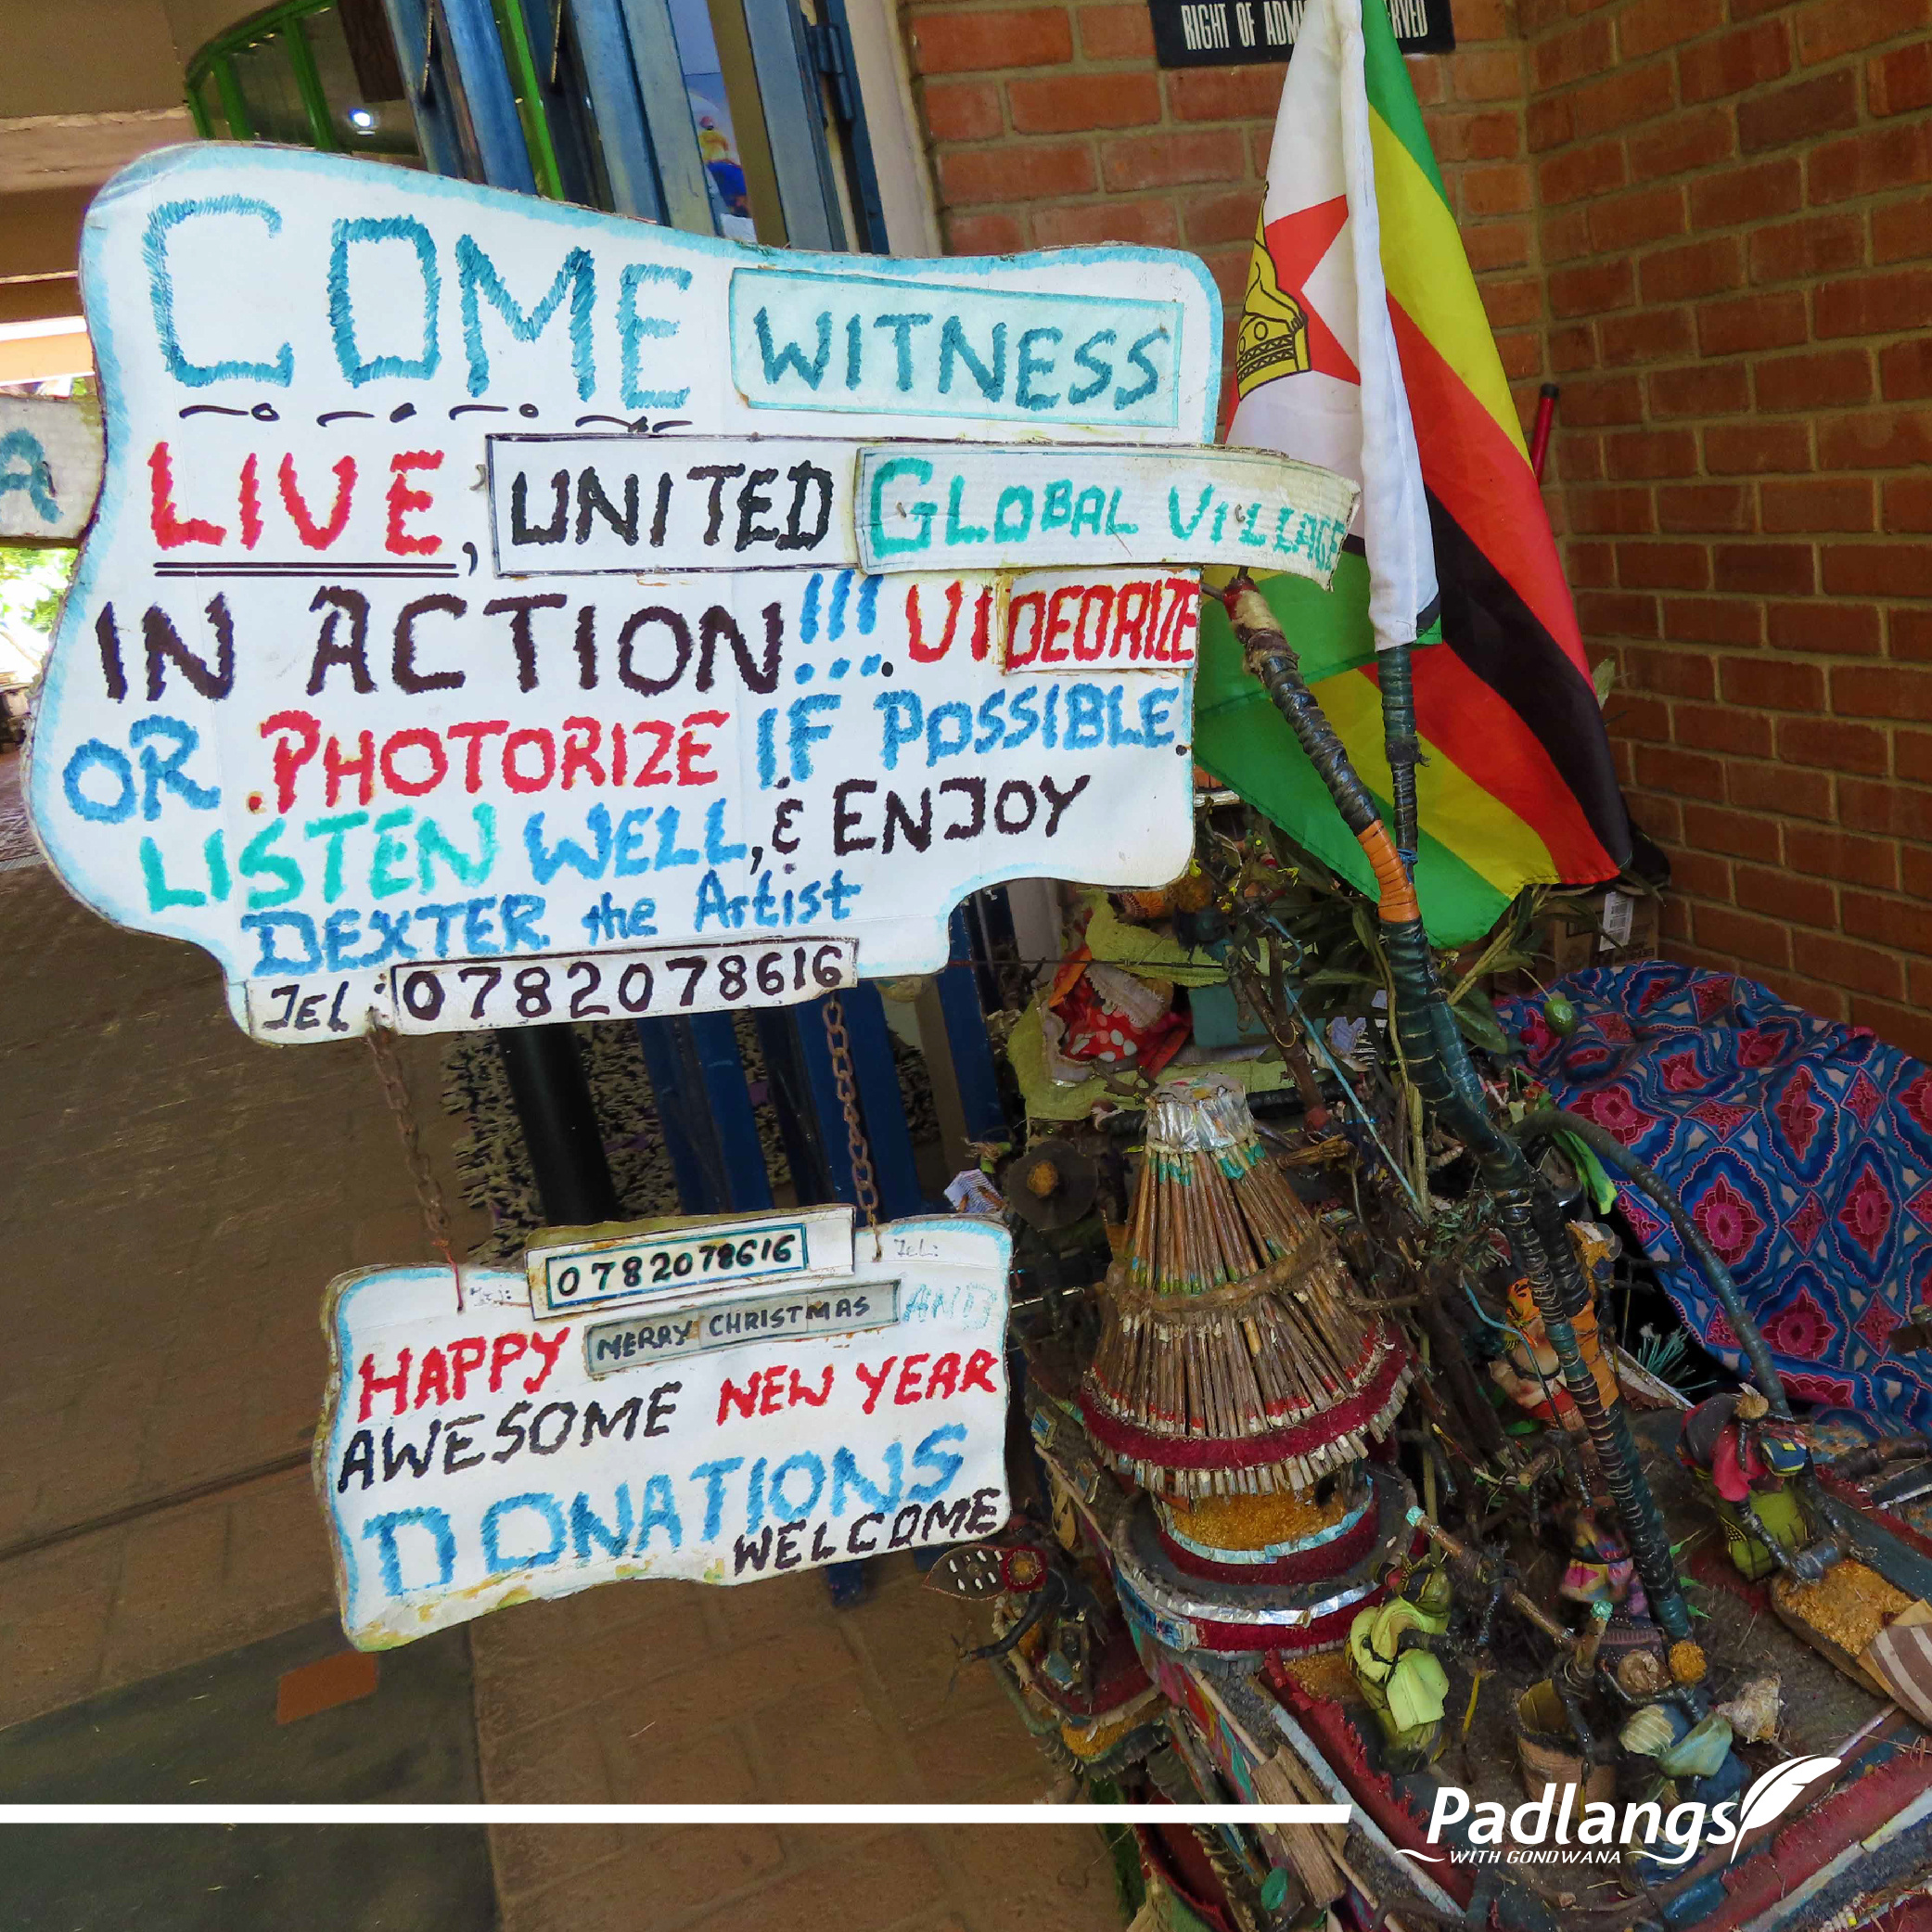 RIGHT OF ADM RVED
A
COME WITNESS
LIVE, UNITED GLOBAL VILLAGE
IN ACTION!!! VIDEORIZE
OR .PHOTORIZE IF POSSIBLE.
LISTEN WELL, & ENJOY
DEXTER the Artist
TEL: 0782078616
0782078616
Tel: Tel:
HAPPY MERRY CHRISTMAS AND
AWESOME NEW YEAR
DONATIONS
WELCOME
Padlangs
WITH GONDWANA